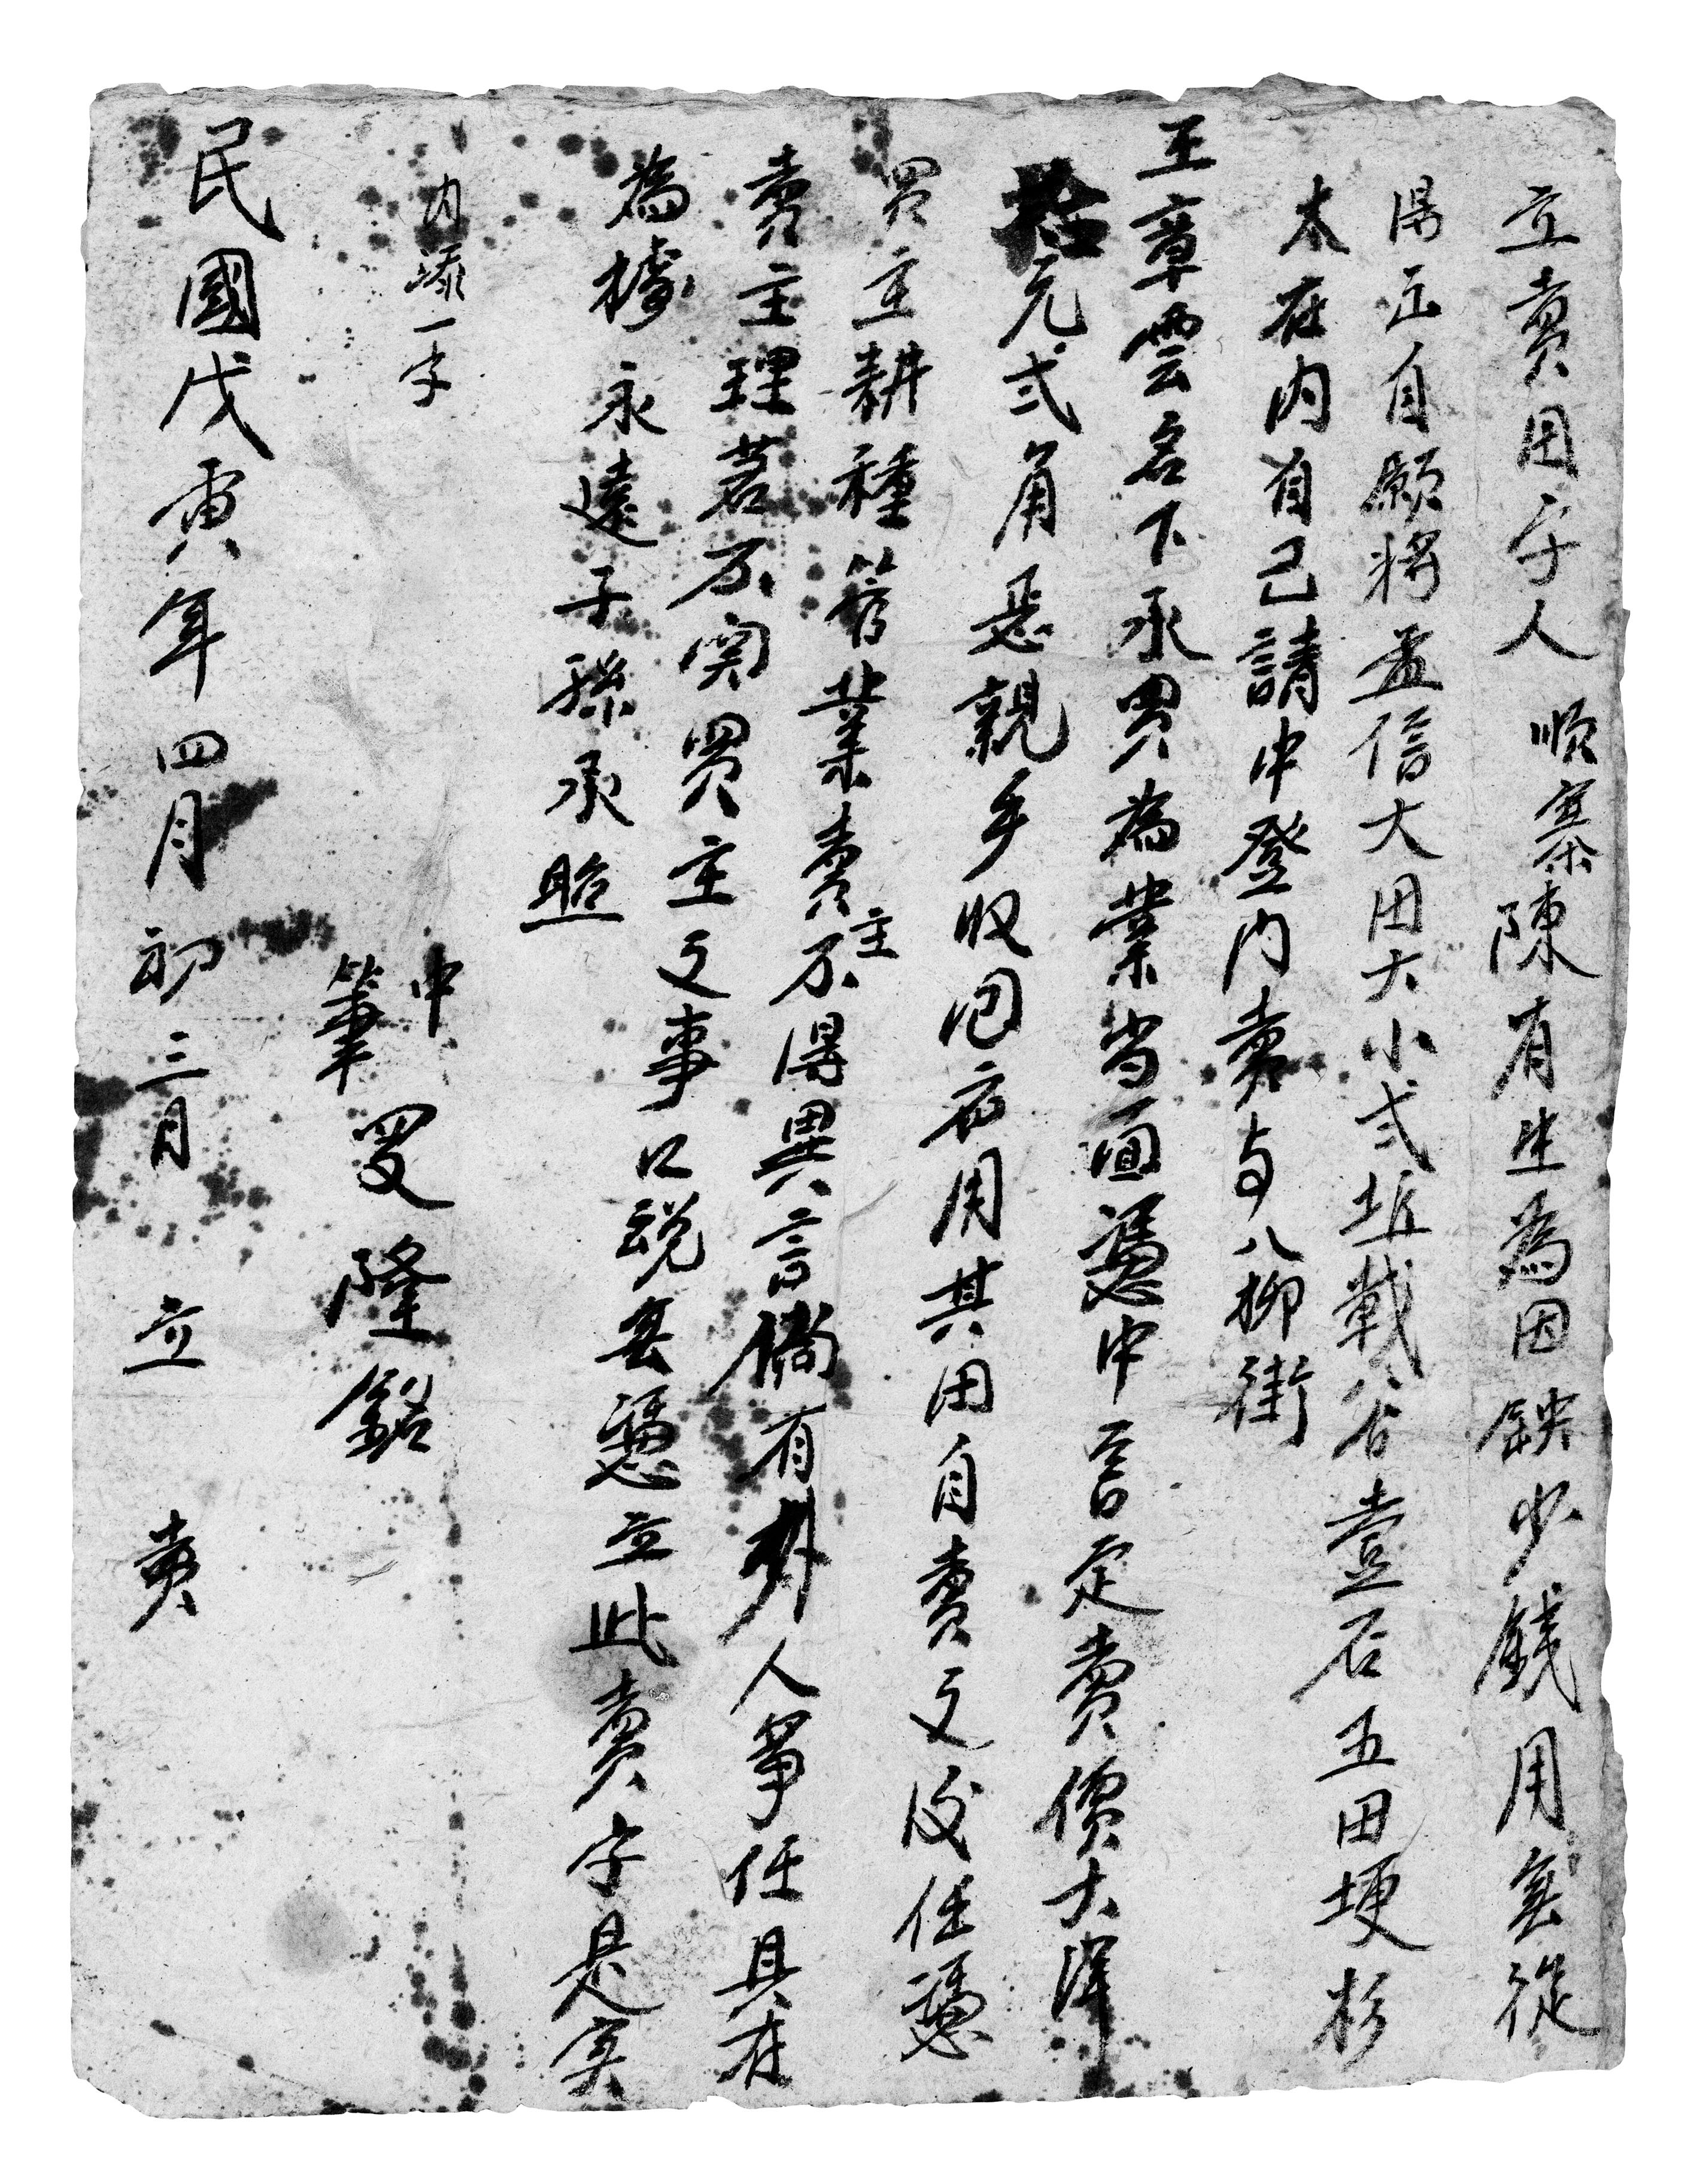 立賣田字人順寨陳有生為因缺少錢用無從
得正自願将孟信大田大小弍坵載谷壹石五田埂杉
木在内自己請中登门賣与八柳街
王章雲名下承買為業当面憑中言定賣價大洋
拾元弍角是親手收回衣用其田自賣之後任憑
買主耕種管業賣主不得異言倘有外人爭任具在
賣主理若不関買主之事口説無憑立此賣字是实
為據永遠子孫承照
内添一字
中
筆 受隆銘
民國戊寅年四月初三月 立 賣